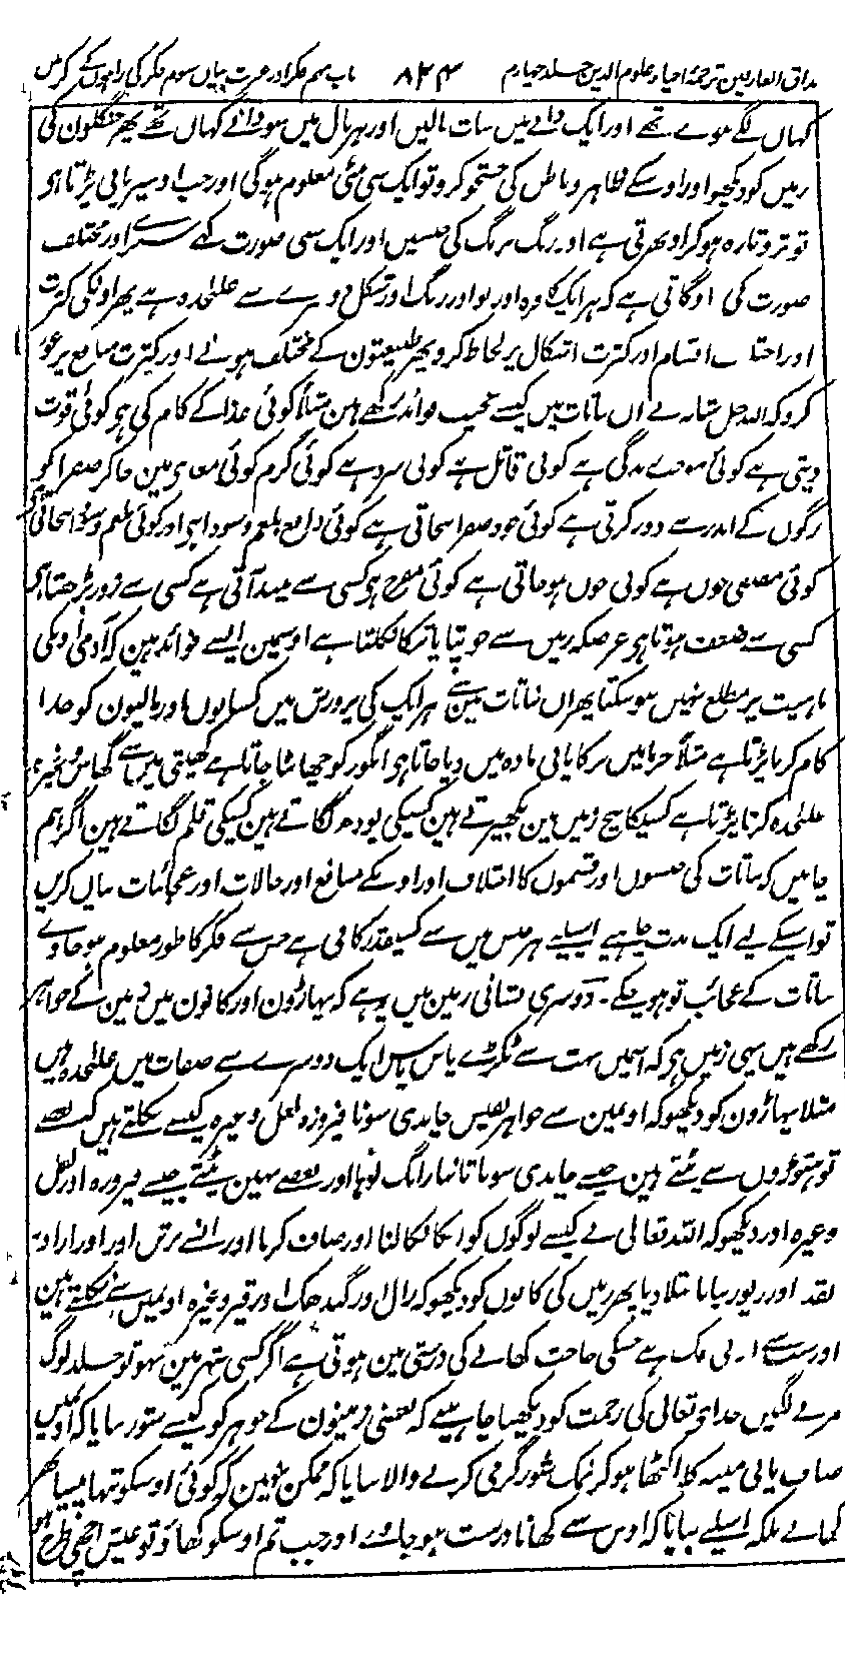 مذاق العارفین ترجمۂ احیاء علوم الدین جلد چہارم ۸۲۳ باب نہم فکر اور عبرت بیان سوم فکر کی راہوں کے ذکر میں
کہاں لگے ہوے تھے اور ایک دانے میں سات بالیں اور ہر بال میں سو دانے کہاں تھے پھر جنگلون کی
زمین کو دیکھو اور اوسکے ظاہر و باطن کی جستجو کرو تو ایک سی مٹی معلوم ہوگی اور جب اوسپر پانی پڑتا ہی
تو تر و تازہ ہوکر اوبھرتی ہے اور رنگ برنگ کی جنسیں اور ایک سی صورت کے سبزے اور مختلف
صورت کی اوگاتی ہے کہ ہر ایک کا مزہ اور بو اور رنگ اور شکل دوسرے سے علٰحدہ ہے پھر اونکی کثرت
اور اختلاف اقسام اور کثرت اشکال پر لحاظ کرو پھر طبیعتون کے مختلف ہونے اور کثرت منافع پر غور
کرو کہ اللہ جل شانہ نے ان نباتات میں کیسے عجیب فوائد رکھے ہین مثلاً کوئی غذا کے کام کی ہی کوئی قوت
دیتی ہے کوئی موجب زندگی ہے کوئی قاتل ہے کوئی سرد ہے کوئی گرم کوئی معدہ مین جاکر صفرا کو
رگوں کے اندر سے دور کرتی ہے کوئی خود صفرا بنجاتی ہے کوئی دافع بلغم و سودا ہی اور کوئی بلغم و سودا بنجاتی ہی
کوئی مصفی خون ہے کوئی خون ہوجاتی ہے کوئی مفرح ہی کسی سے نیند آتی ہے کسی سے زور بڑھتا ہی
کسی سے ضعف ہوتا ہی غرضکہ زمین سے جو پتا یا تنکا نکلتا ہے اوسمین ایسے فوائد ہین کہ آدمی اوسکی
ماہیت پر مطلع نہیں ہوسکتا پھر ان نباتات مین سے ہر ایک کی پرورش میں کسانوں اور مالیون کو جدا
کام کرنا پڑتا ہے مثلاً خرما میں نر کا پانی مادہ میں دیا جاتا ہی انگور کو چھانٹا جاتا ہے کھیتی میں سے گھاس وغیرہ
علٰحدہ کرنا پڑتا ہے کسیکا بیج زمین مین بکھیرتے ہین کسیکی پودھ لگاتے ہین کسیکی قلم لگاتے ہین اگر ہم
چاہیں کہ نباتات کی جنسوں اور قسموں کا اختلاف اور اوسکے منافع اور حالات اور عجائبات بیان کریں
تو اسکے لیے ایک مدت چاہیے اسلیے ہر جنس میں سے کسیقدر کافی ہے جس سے فکر کا طور معلوم ہوجاوے
نباتات کے عجائب تو ہوچکے۔ دوسری نشانی زمین میں یہ ہے کہ پہاڑون اور کانون میں زمین کے جواہر
رکھے ہیں یہی زمین ہی کہ اسمیں بہت سے ٹکڑے پاس پاس ایک دوسرے سے صفات میں علٰحدہ ہیں
مثلا پہاڑون کو دیکھو کہ اونمین سے جواہر نفیس چاندی سونا فیروزہ لعل وغیرہ کیسے نکلتے ہیں بعضے
تو ہتوڑوں سے پٹتے ہین جیسے چاندی سونا تانبا رانگ لوہا اور بعضے نہین پٹتے جیسے فیروزہ اور لعل
وغیرہ اور دیکھو کہ اللہ تعالی نے کیسے لوگوں کو انکا نکالنا اور صاف کرنا اور ان سے برتن اور اوزار اور
نقد اور زیور بنانا بتلا دیا پھر زمین کی کانوں کو دیکھو کہ رال اور گندھک اور قیر وغیرہ اونمیں سے نکلتے ہین
اور سب سے ادنی نمک ہے جسکی حاجت کھانے کی درستی مین ہوتی ہے اگر کسی شہر مین نہو تو جلد لوگ
مرنے لگیں خدای تعالی کی رحمت کو دیکھنا چاہیے کہ بعضی زمینون کے جوہر کو کیسے شور بنایا کہ اونمیں
صاف پانی مینہ کا اکٹھا ہوکر نمک شور گرمی کرنے والا بنایا کہ ممکن نہین کہ کوئی اوسکو تنہا پیسا بھر
کھالے بلکہ اسلیے بنایا کہ اوس سے کھانا درست ہوجاوے اور جب تم اوسکو کھاؤ تو عیش اچھی طرح ہو